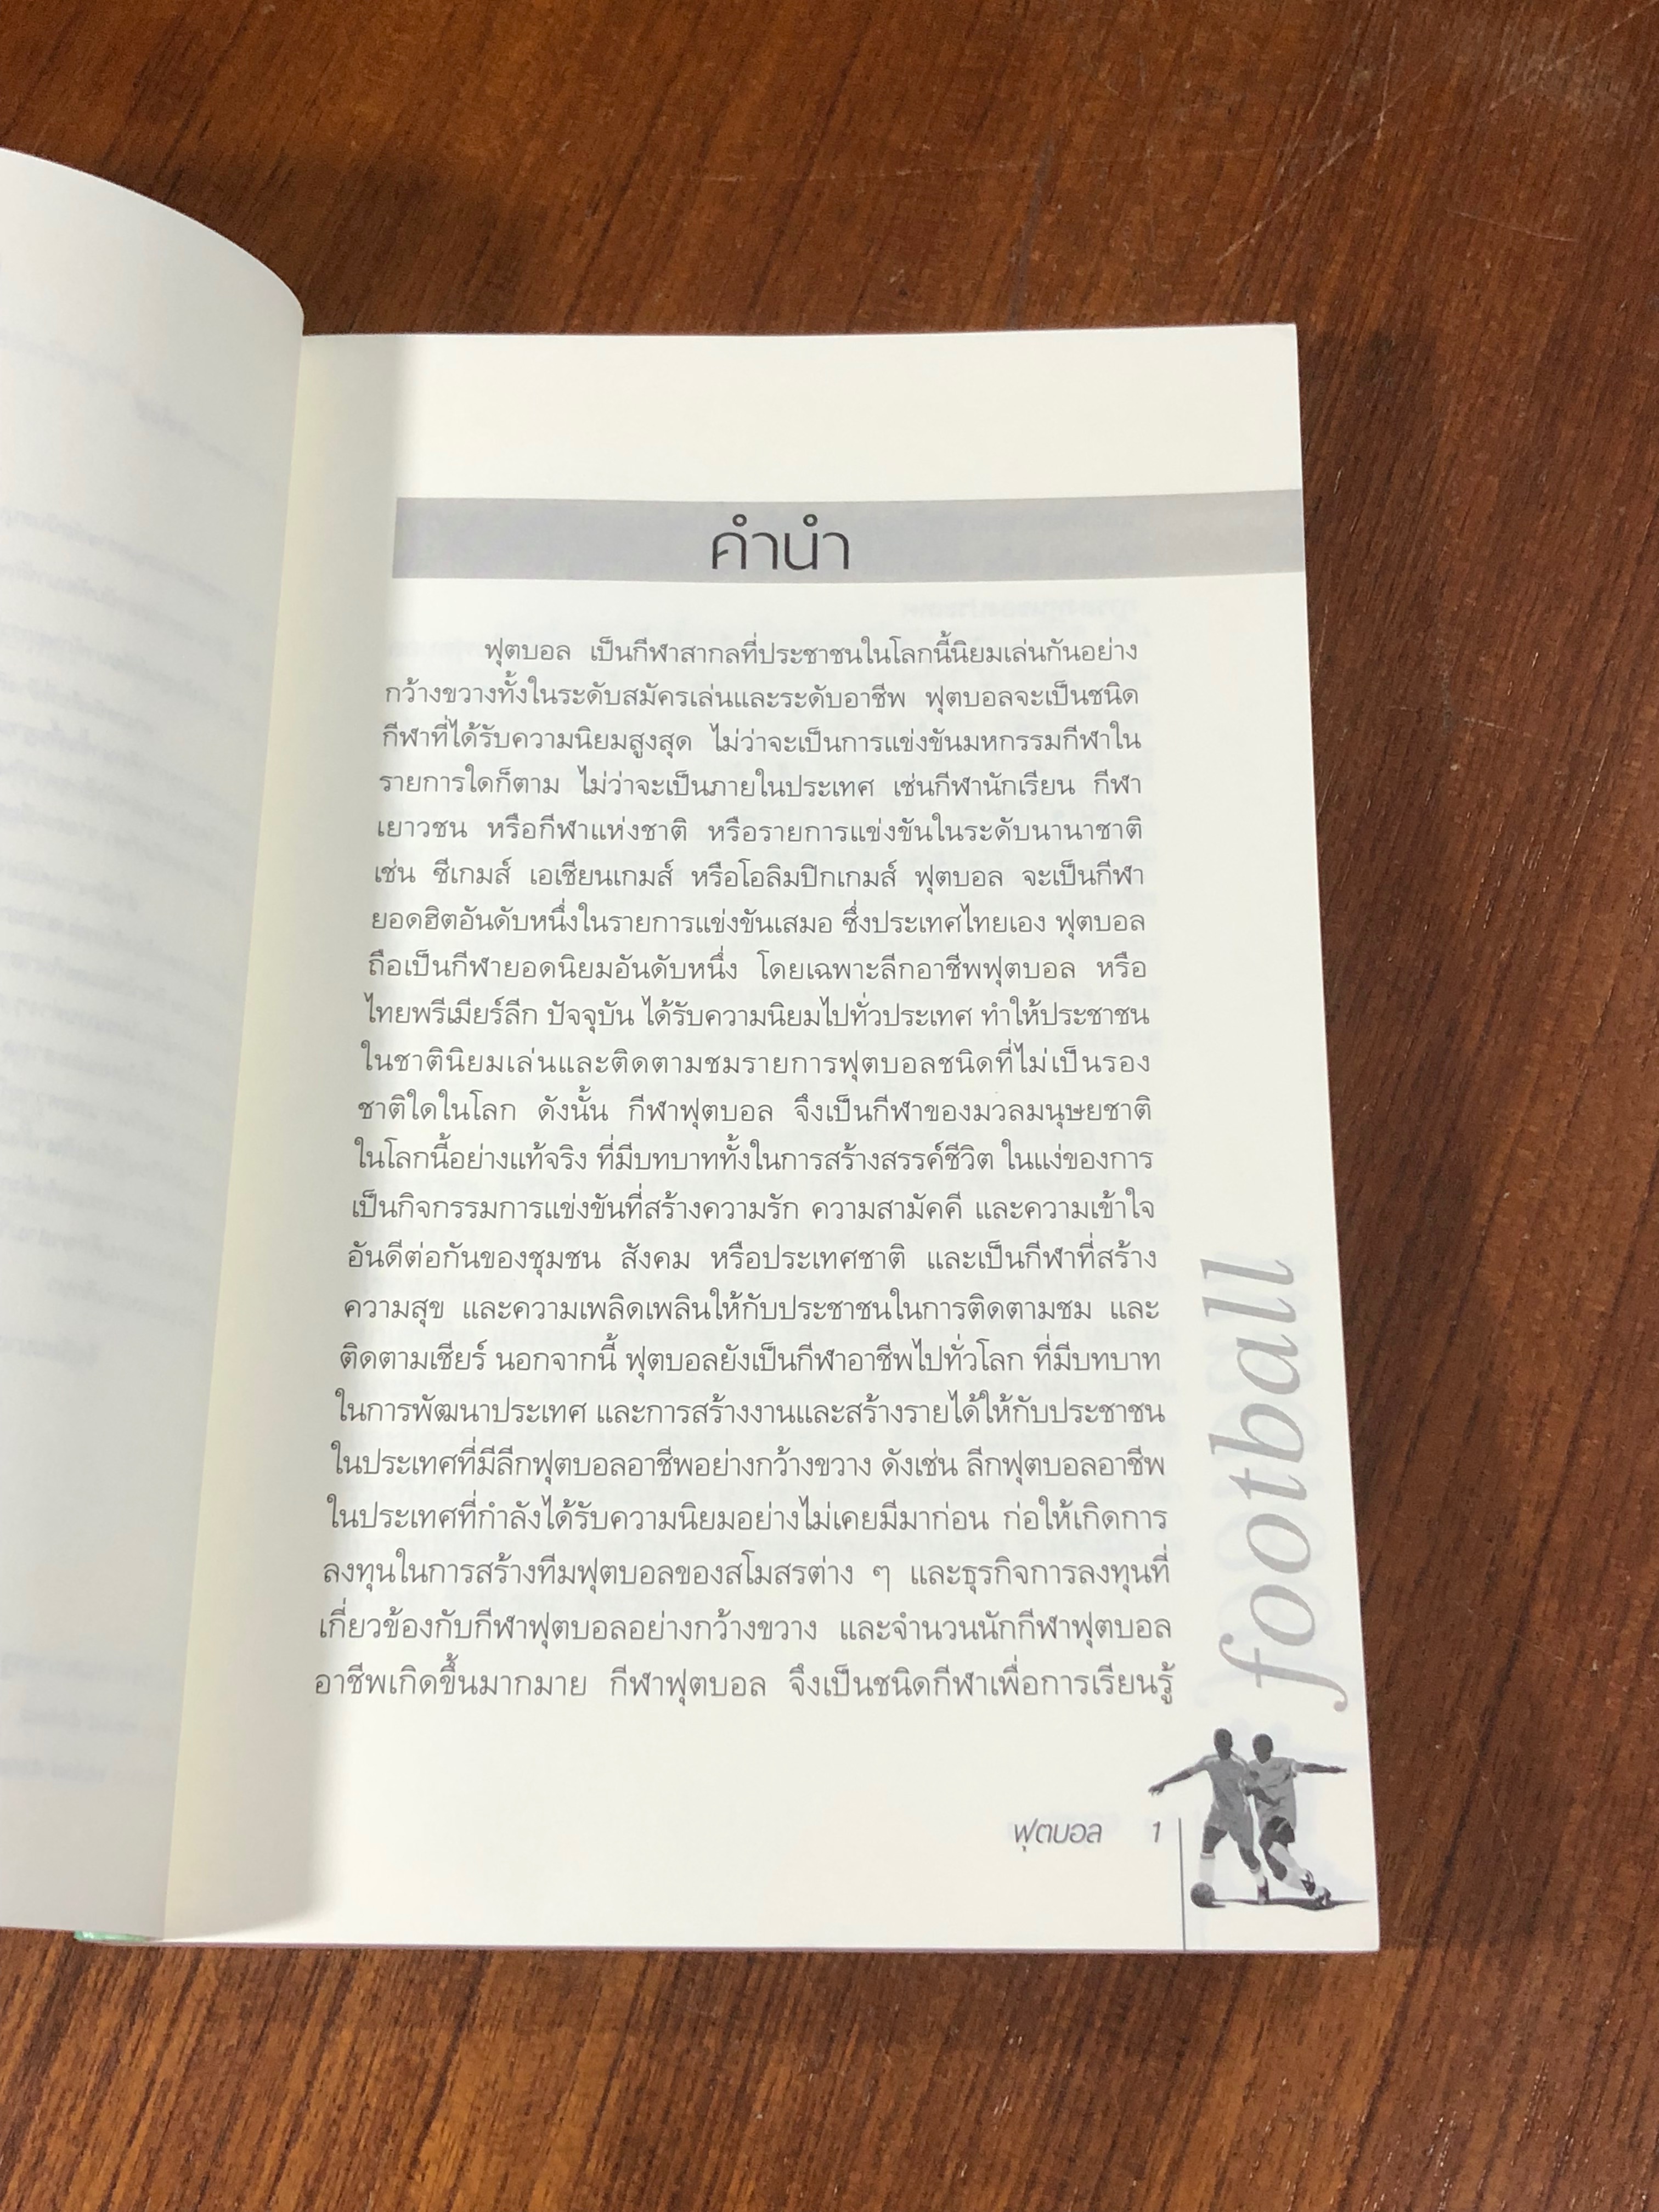 คำนำ
ฟุตบอล เป็นกีฬาสากลที่ประชาชนในโลกนี้นิยมเล่นกันอย่าง
กว้างขวางทั้งในระดับสมัครเล่นและระดับอาชีพ ฟุตบอลจะเป็นชนิด
กีฬาที่ได้รับความนิยมสูงสุด ไม่ว่าจะเป็นการแข่งขันมหกรรมกีฬาใน
รายการใดก็ตาม ไม่ว่าจะเป็นภายในประเทศ เช่นกีฬานักเรียน กีฬา
เยาวชน หรือกีฬาแห่งชาติ หรือรายการแข่งขันในระดับนานาชาติ
เช่น ซีเกมส์ เอเชียนเกมส์ หรือโอลิมปิกเกมส์ ฟุตบอล จะเป็นกีฬา
ยอดฮิตอันดับหนึ่งในรายการแข่งขันเสมอ ซึ่งประเทศไทยเอง ฟุตบอล
ถือเป็นกีฬายอดนิยมอันดับหนึ่ง โดยเฉพาะลีกอาชีพฟุตบอล หรือ
ไทยพรีเมียร์ลีก ปัจจุบัน ได้รับความนิยมไปทั่วประเทศ ทำให้ประชาชน
ในชาตินิยมเล่นและติดตามชมรายการฟุตบอลชนิดที่ไม่เป็นรอง
ชาติใดในโลก ดังนั้น กีฬาฟุตบอล จึงเป็นกีฬาของมวลมนุษยชาติ
ในโลกนี้อย่างแท้จริง ที่มีบทบาททั้งในการสร้างสรรค์ชีวิต ในแง่ของการ
เป็นกิจกรรมการแข่งขันที่สร้างความรัก ความสามัคคี และความเข้าใจ
อันดีต่อกันของชุมชน สังคม หรือประเทศชาติ และเป็นกีฬาที่สร้าง
ความสุข และความเพลิดเพลินให้กับประชาชนในการติดตามชม และ
ติดตามเชียร์ นอกจากนี้ ฟุตบอลยังเป็นกีฬาอาชีพไปทั่วโลก ที่มีบทบาท
ในการพัฒนาประเทศ และการสร้างงานและสร้างรายได้ให้กับประชาชน
ในประเทศที่มีลีกฟุตบอลอาชีพอย่างกว้างขวาง ดังเช่น ลีกฟุตบอลอาชีพ
ในประเทศที่กำลังได้รับความนิยมอย่างไม่เคยมีมาก่อน ก่อให้เกิดการ
ลงทุนในการสร้างทีมฟุตบอลของสโมสรต่าง ๆ และธุรกิจการลงทุนที่
เกี่ยวข้องกับกีฬาฟุตบอลอย่างกว้างขวาง และจำนวนนักกีฬาฟุตบอล
อาชีพเกิดขึ้นมากมาย กีฬาฟุตบอล จึงเป็นชนิดกีฬาเพื่อการเรียนรู้
football
ฟุตบอล 1